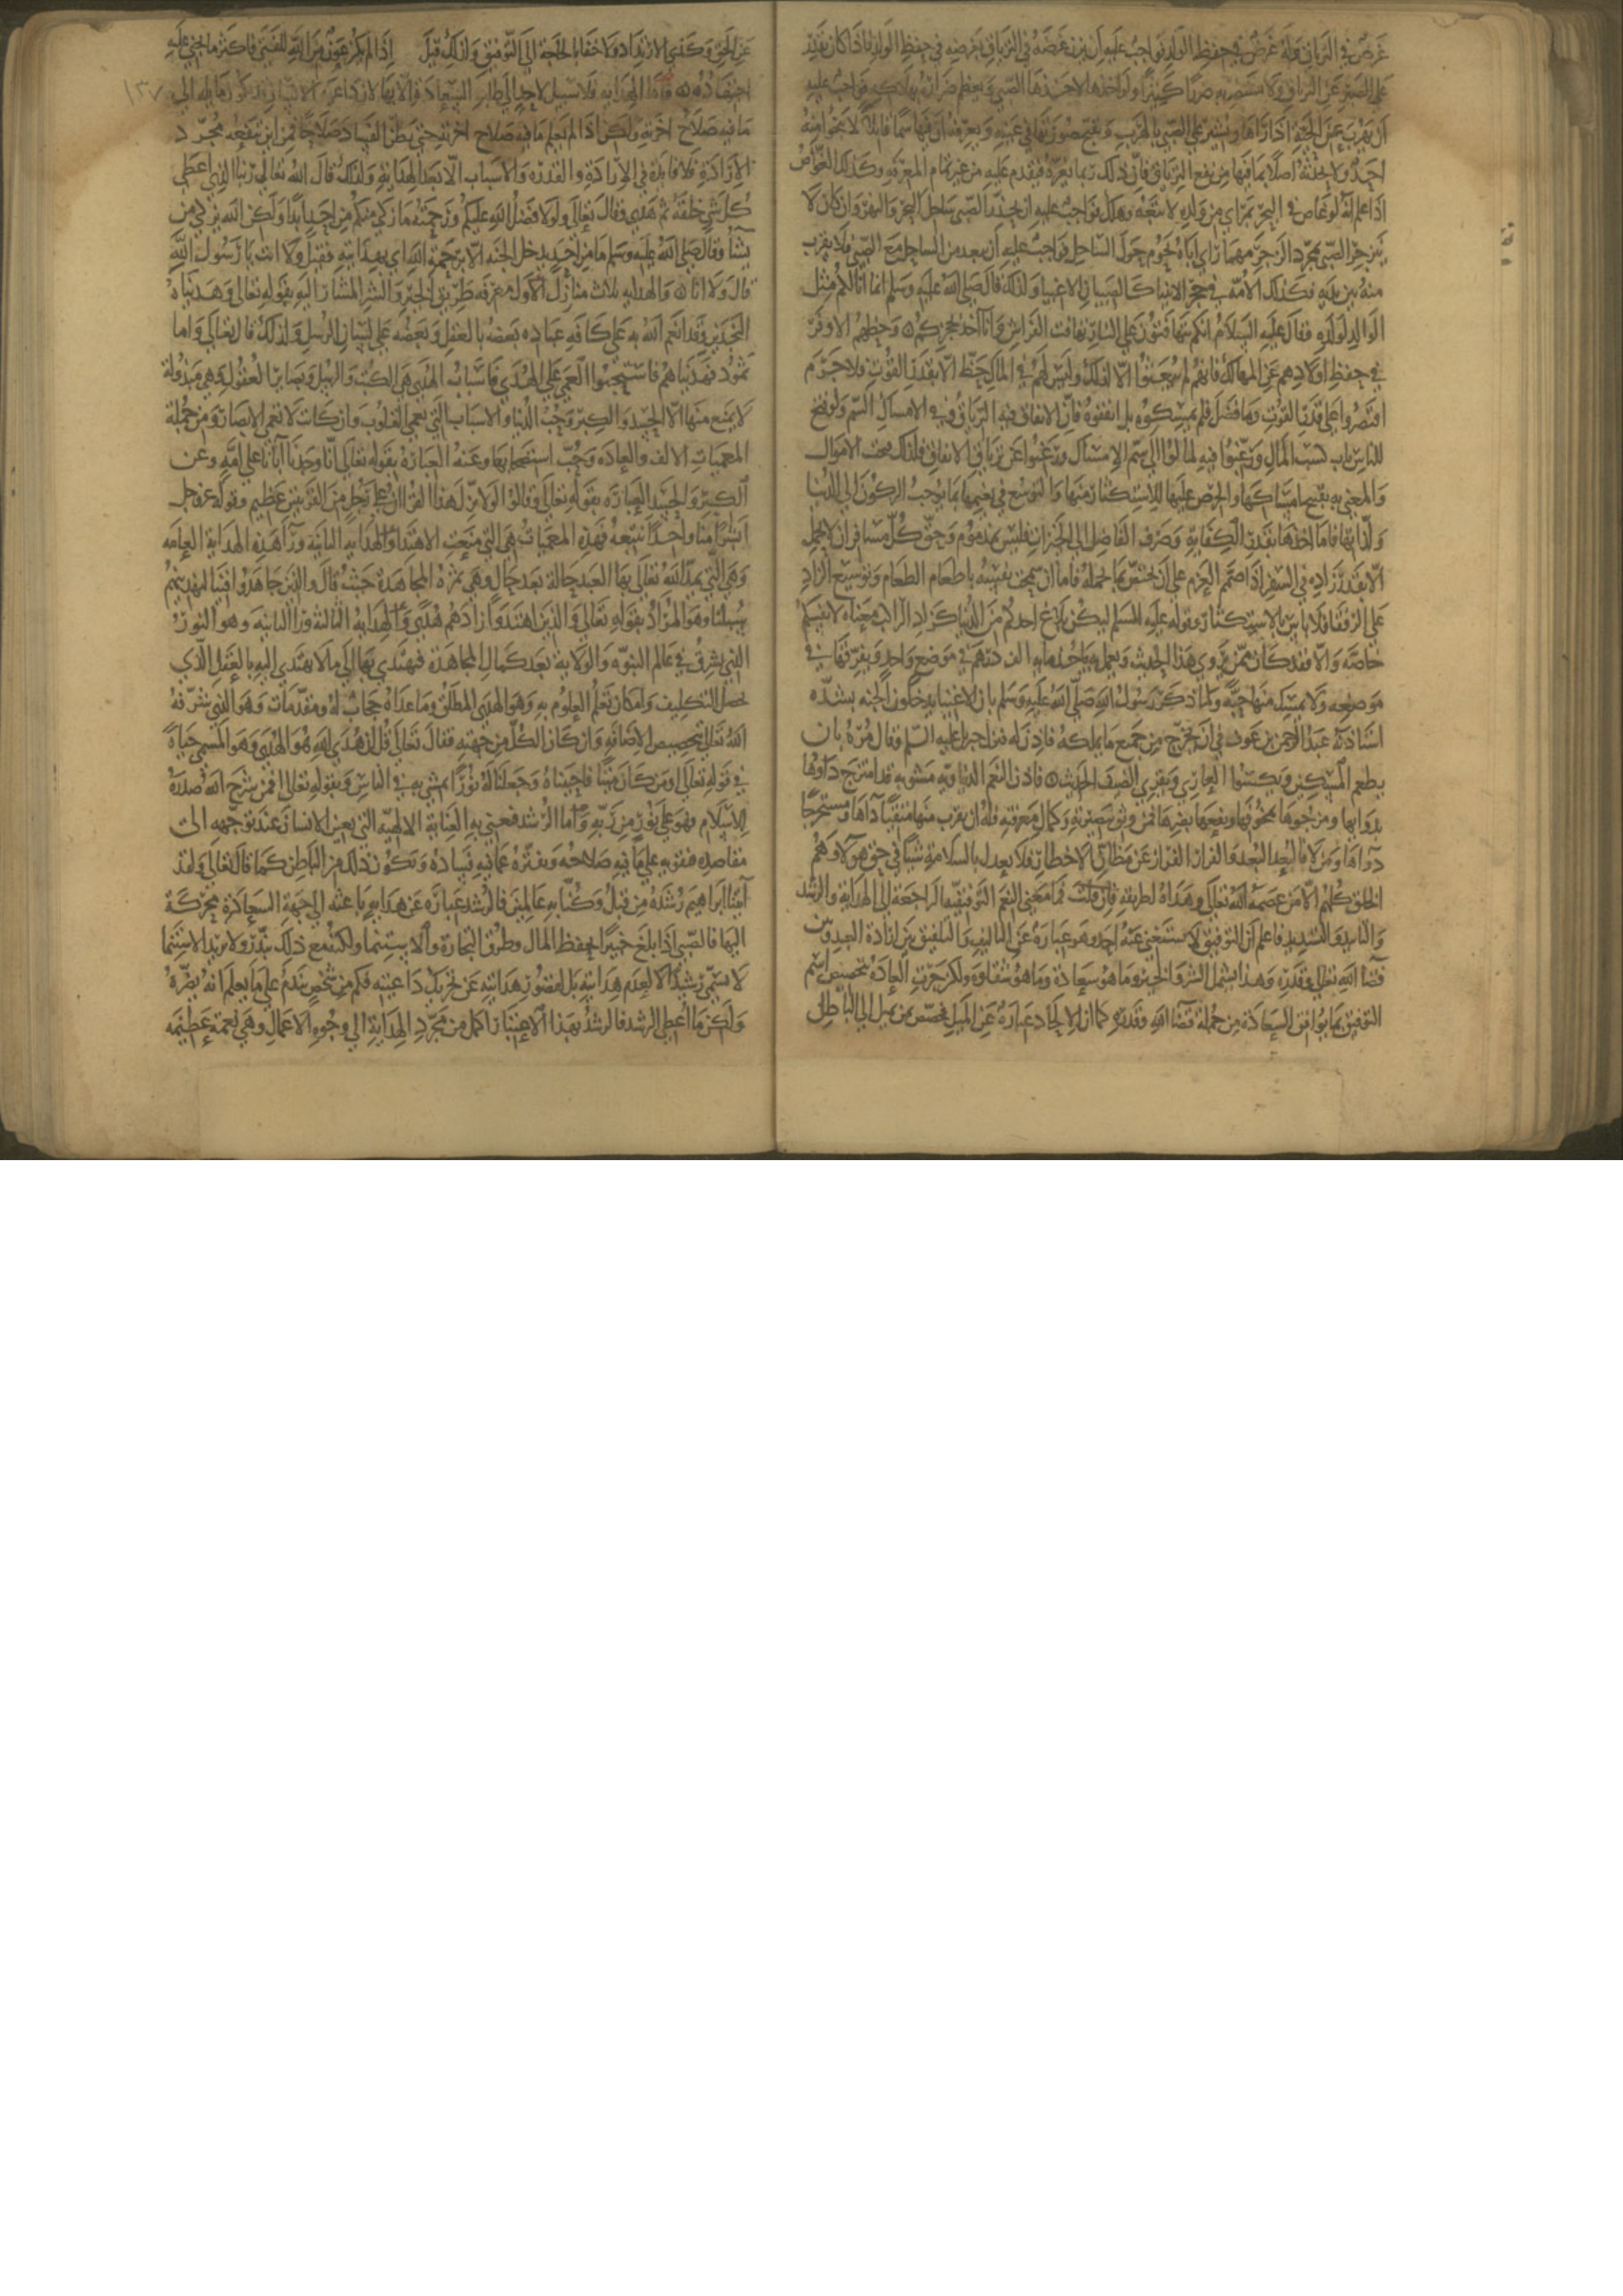 غرض في الترياق وله غرض في حفظ الولد فواجب عليه أن يزن غرضه في الترياق بغرضه في حفظ الولد فاذا كان يقدر
على الصبر عن الترياق ولا يستضر به ضررا كثيرا ولو اخذها لاخذها الصبي ويعظم ضرره بهلاكه فواجب عليه
أن يهرب عن الحية اذا رآها ويشير على الصبي بالهرب ويقبح صورتها في عينه ويعرفه أن فيها سما قاتلا لا ينجوا منه
احد ولا يحدثه اصلا بما فيها من نفع الترياق فان ذلك ربما يغره فيقدم عليه من غير تمام المعرفة وكذلك الغواص
اذا علم انه لو غاص في البحر بمرأى من ولده لاتبعه وهلك فواجب عليه ان يحذر الصبي ساحل البحر والنهر وان كان لا
ينزجر الصبي بمجرد الزجر مهما رأى اباه يحوم حول الساحل فواجب عليه أن يبعد من الساحل مع الصبي ولا يقرب
منه بين يديه فكذلك الامة في حجر الانبياء كالصبيان الاغبياء ولذلك قال صلى الله عليه وسلم انما انا لكم مثل
الوالد لولده وقال عليه السلام انكم تتهافتون على النار تهافت الفراش وانا آخذ بحجزكم وحظهم الاوفر
في حفظ اولادهم عن المهالك فانهم لم يبعثوا الا لذلك وليس لهم في المال حظ الا بقدر القوت فلا جرم
اقتصروا على قدر القوت وما فضل فلم يمسكوه بل انفقوه فان الانفاق فيه الترياق وفي الامساك السم ولو فتح
للناس باب كسب المال ورغبوا فيه لمالوا الى سم الامساك ورغبوا عن ترياق الانفاق فلذلك قبحت الاموال
والمعني به تقبيح امساكها والحرص عليها للاستكثار منها والتوسع في نعيمها بما يوجب الركون الى الدنيا
ولذاتها فاما اخذها بقدر الكفاية وصرف الفاضل الى الخيرات فليس بمذموم وحق كل مسافر ان لا يحمل
الا بقدر زاده في السفر اذا صمم العزم على أن يختص بما يحمله فاما ان سمحت نفسه باطعام الطعام وتوسيع الزاد
على الرفقاء فلا باس بالاستكثار وقوله عليه السلم ليكن بلاغ احدكم من الدنيا كزاد الراكب معناه لانفسكم
خاصة والا فقد كان ممن يروي هذا الحديث ويعمل به ياخذ مايه الف درهم في موضع واحد ويفرقها في
موضعه ولا يمسك منها حبة ولما ذكر رسول الله صلى الله عليه وسلم بان الاغنيا يدخلون الجنه بشده
استاذنه عبد الرحمن بن عوف في ان يخرج من جميع ما يملكه فاذن له فنزل جبريل عليه السلم وقال مره بان
يطعم المسكين ويكسوا العاري ويقري الضيف الحديث فاذن النعم الدنياويه مشوبه قد امتزج داوها
بدوايها ومرجوها بمخوفها ونفعها بضرها فمن وثق ببصيرته وكمال معرفته فله ان يقرب منها متقيا داءها ومستخرجا
دواءها ومن لا فالبعد البعد والفرار الفرار عن مظان الاخطار فلا يعدل بالسلامة شيا في حق هولاء وهم
الخلق كلهم الا من عصمه الله تعالى وهداه لطريقه فان قلت فما معنى النعم التوفيقيه الراجعة الى الهداية والرشد
والتاييد والتسديد فاعلم أن التوفيق لا يستغني عنه احد وهو عبارة عن التاليف والتلفيق بين ارادة العبد وبين
قضا الله تعالى وقدره وهذا يشمل الشر والخير وما هو سعادة وما هو شقاوة ولكن جرت العادة بتخصيص اسم
التوفيق بما يوافق السعادة من جملة قضا الله وقدره كما ان الالحاد عبارة عن الميل فخصص بمن يميل الى الباطل
عن الحق وكذي الارتداد ولا خفا بالحاجة الى التوفيق ولذلك قيل اذا لم يكن عون من الله للفتى فاكثر ما يجني عليه
اجتهاده فاما الهداية فلا سبيل لاحد الى طلب السعادة الا بها لان داعية الانسان قد تكون مايله الى
ما فيه صلاح اخرته ولكن اذا لم يعلم ما فيه صلاح اخرته حتى يظن الفساد صلاحا فمن اين ينفعه مجرد
الارادة فلا فايدة في الارادة والقدرة والاسباب الا بعد الهداية ولذلك قال الله تعالى ربنا الذي اعطى
كل شي خلقه ثم هدى وقال تعالى ولولا فضل الله عليكم ورحمته ما زكى منكم من احد ابدا ولكن الله يزكي من
يشأ وقال صلى الله عليه وسلم ما من احد يدخل الجنه الا برحمة الله اي بهدايته فقيل ولا انت يا رسول الله
قال ولا انا والهدايه ثلاث منازل الاول معرفه طريق الخير والشر المشار اليه بقوله تعالى وهديناه
النجدين وقد انعم الله به على كافه عباده بعضه بالعقل وبعضه على لسان الرسل ولذلك قال تعالى واما
ثمود فهديناهم فاستحبوا العمى على الهدى فاسباب الهدى هي الكتب والرسل وبصاير العقول وهي مبذولة
لا يمنع منها الا الحسد والكبر وحب الدنيا والاسباب التي تعمي القلوب وان كانت لا تعمي الابصار ومن جملة
المعميات الالف والعادة وحب استصحابها وعنه العبارة بقوله تعالى انا وجدنا آبانا على امه وعن
الكبر والحسد العبارة بقوله تعالى وقالوا لولا نزل هذا القران على رجل من القريتين عظيم وقوله عز وجل
ابشرا منا واحدا نتبعه فهذه المعميات هي التي منعت الاهتدا والهدايه الثانية ورآ هذه الهداية العامه
وهي التي يمد الله تعالى بها العبد حالة بعد حال وهي ثمرة المجاهدة حيث قال والذين جاهدوا فينا لنهدينهم
سبلنا وهو المراد بقوله تعالى والذين اهتدوا زادهم هدى والهداية الثالثة ورا الثانية وهو النور
الذي يشرق في عالم النبوة والولاية بعد كمال المجاهدة فيهتدي بها الى ما لا يهتدي اليه بالعقل الذي
يحصل التكليف وامكان تعلم العلوم به وهو الهدى المطلق وما عداه حجاب له ومقدمات وهو الذي شرفه
الله تعالى بتخصيص الاضافه وان كان الكل من جهته فقال تعالى قل ان هدى الله هو الهدى وهو المسمى حياة
في قوله تعالى اومن كان ميتا فاحييناه وجعلنا له نورا يمشي به في الناس وبقوله تعالى افمن شرح الله صدره
للاسلام فهو على نور من ربه واما الرشد فنعني به العناية الالهيه التي تعين الانسان عند توجهه الى
مقاصده فتقويه على ما فيه صلاحه وتفتره عما فيه فساده وتكون ذلك من الباطن كما قال تعالى ولقد
آتينا ابراهيم رشده من قبل وكنا به عالمين فالرشد عبارة عن هداية باعثه الى جهة السعادة محركة
اليها فالصبي اذا بلغ خبيرا بحفظ المال وطرق التجارة والاستنما ولكنه مع ذلك يبذر ولا يريد الاستنما
لا يسمى رشيدا لا لعدم هدايته بل لقصور هدايته عن تحريك داعيته فكم من شخص يقدم على ما يعلم انه يضره
ولكن ما اعطي الرشد فالرشد بهذا الاعتبار اكمل من مجرد الهداية الى وجوه الاعمال وهي نعمة عظيمه
١٣٧